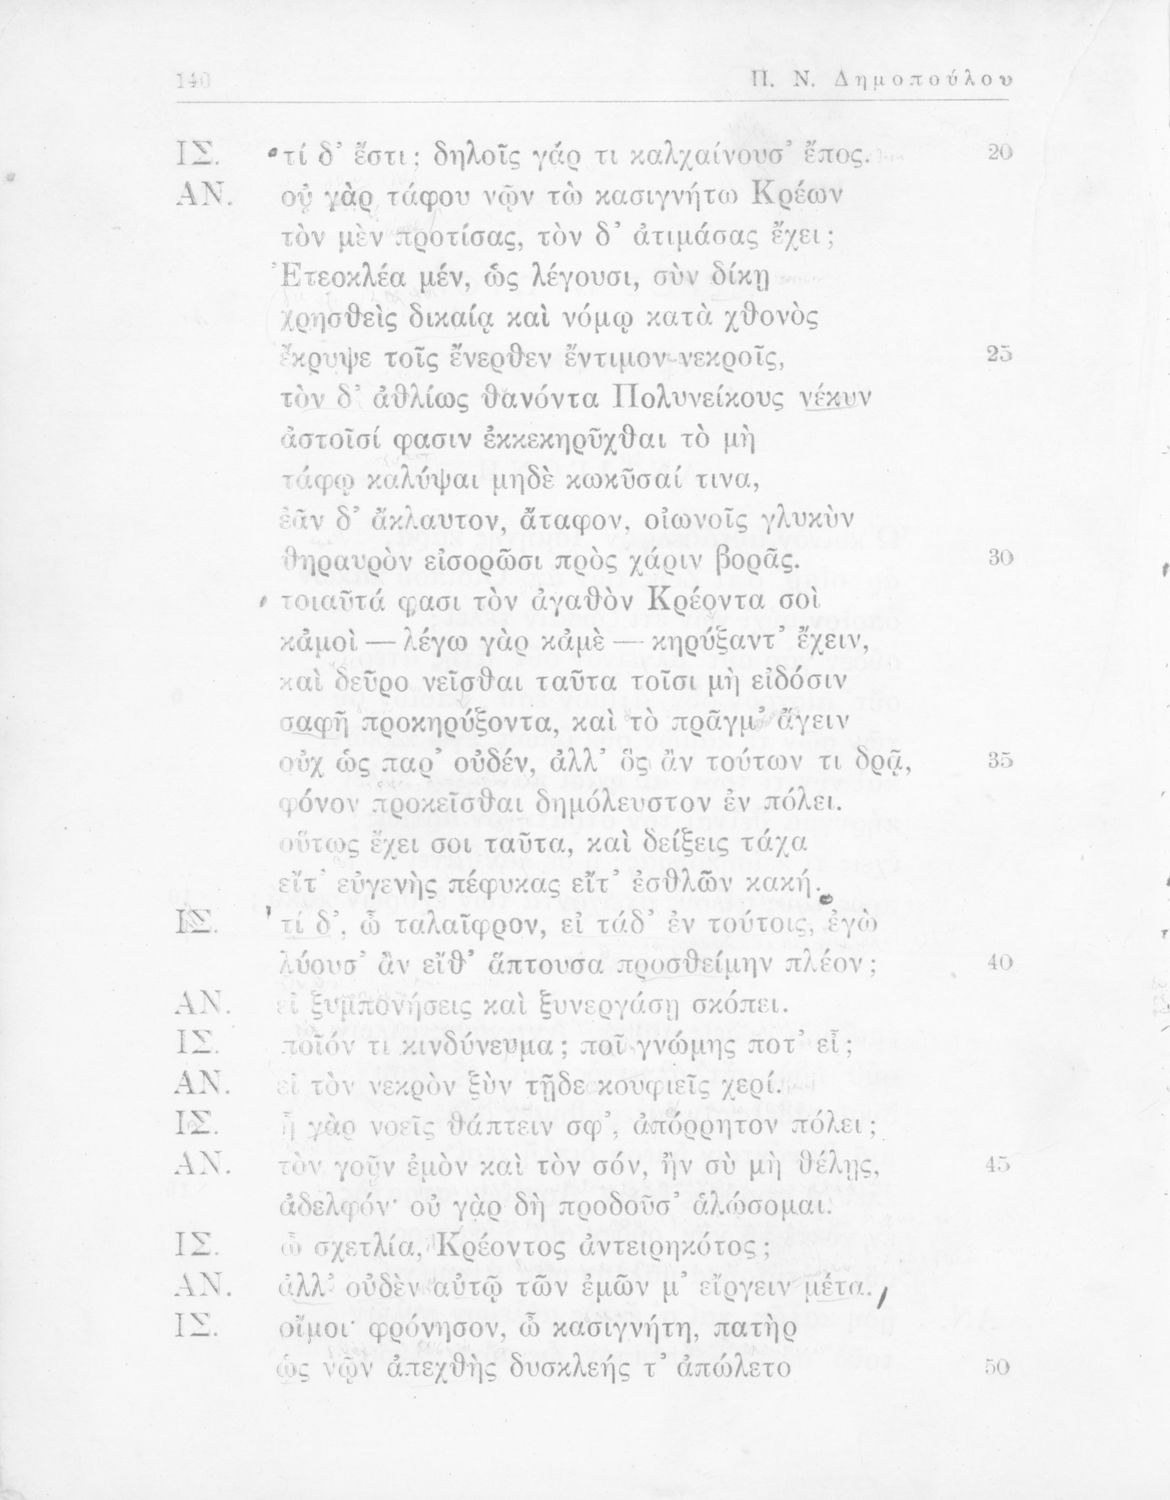 140 Π. Ν. Δημοπούλου
ΙΣ. τί δ' ἔστι; δηλοῖς γάρ τι καλχαίνουσ' ἔπος. 20
ΑΝ. οὐ γὰρ τάφου νῷν τὼ κασιγνήτω Κρέων
τὸν μὲν προτίσας, τὸν δ' ἀτιμάσας ἔχει;
Ἐτεοκλέα μέν, ὡς λέγουσι, σὺν δίκῃ
χρησθεὶς δικαίᾳ καὶ νόμῳ κατὰ χθονὸς
ἔκρυψε τοῖς ἔνερθεν ἔντιμον νεκροῖς, 25
τὸν δ' ἀθλίως θανόντα Πολυνείκους νέκυν
ἀστοῖσί φασιν ἐκκεκηρῦχθαι τὸ μὴ
τάφῳ καλύψαι μηδὲ κωκῦσαί τινα,
ἐᾶν δ' ἄκλαυτον, ἄταφον, οἰωνοῖς γλυκὺν
θηραυρὸν εἰσορῶσι πρὸς χάριν βορᾶς. 30
τοιαῦτά φασι τὸν ἀγαθὸν Κρέοντα σοὶ
κἀμοὶ — λέγω γὰρ κἀμὲ — κηρύξαντ' ἔχειν,
καὶ δεῦρο νεῖσθαι ταῦτα τοῖσι μὴ εἰδόσιν
σαφῆ προκηρύξοντα, καὶ τὸ πρᾶγμ' ἄγειν
οὐχ ὡς παρ' οὐδέν, ἀλλ' ὃς ἂν τούτων τι δρᾷ, 35
φόνον προκεῖσθαι δημόλευστον ἐν πόλει.
οὕτως ἔχει σοι ταῦτα, καὶ δείξεις τάχα
εἴτ' εὐγενὴς πέφυκας εἴτ' ἐσθλῶν κακή.
ΙΣ. τί δ', ὦ ταλαῖφρον, εἰ τάδ' ἐν τούτοις, ἐγὼ
λύουσ' ἂν εἴθ' ἅπτουσα προσθείμην πλέον; 40
ΑΝ. εἰ ξυμπονήσεις καὶ ξυνεργάσῃ σκόπει.
ΙΣ. ποῖόν τι κινδύνευμα; ποῖ γνώμης ποτ' εἶ;
ΑΝ. εἰ τὸν νεκρὸν ξὺν τῇδε κουφιεῖς χερί.
ΙΣ. ἦ γὰρ νοεῖς θάπτειν σφ', ἀπόρρητον πόλει;
ΑΝ. τὸν γοῦν ἐμὸν καὶ τὸν σόν, ἢν σὺ μὴ θέλῃς, 45
ἀδελφόν· οὐ γὰρ δὴ προδοῦσ' ἁλώσομαι.
ΙΣ. ὦ σχετλία, Κρέοντος ἀντειρηκότος;
ΑΝ. ἀλλ' οὐδὲν αὐτῷ τῶν ἐμῶν μ' εἴργειν μέτα.
ΙΣ. οἴμοι· φρόνησον, ὦ κασιγνήτη, πατὴρ
ὡς νῷν ἀπεχθὴς δυσκλεής τ' ἀπώλετο 50